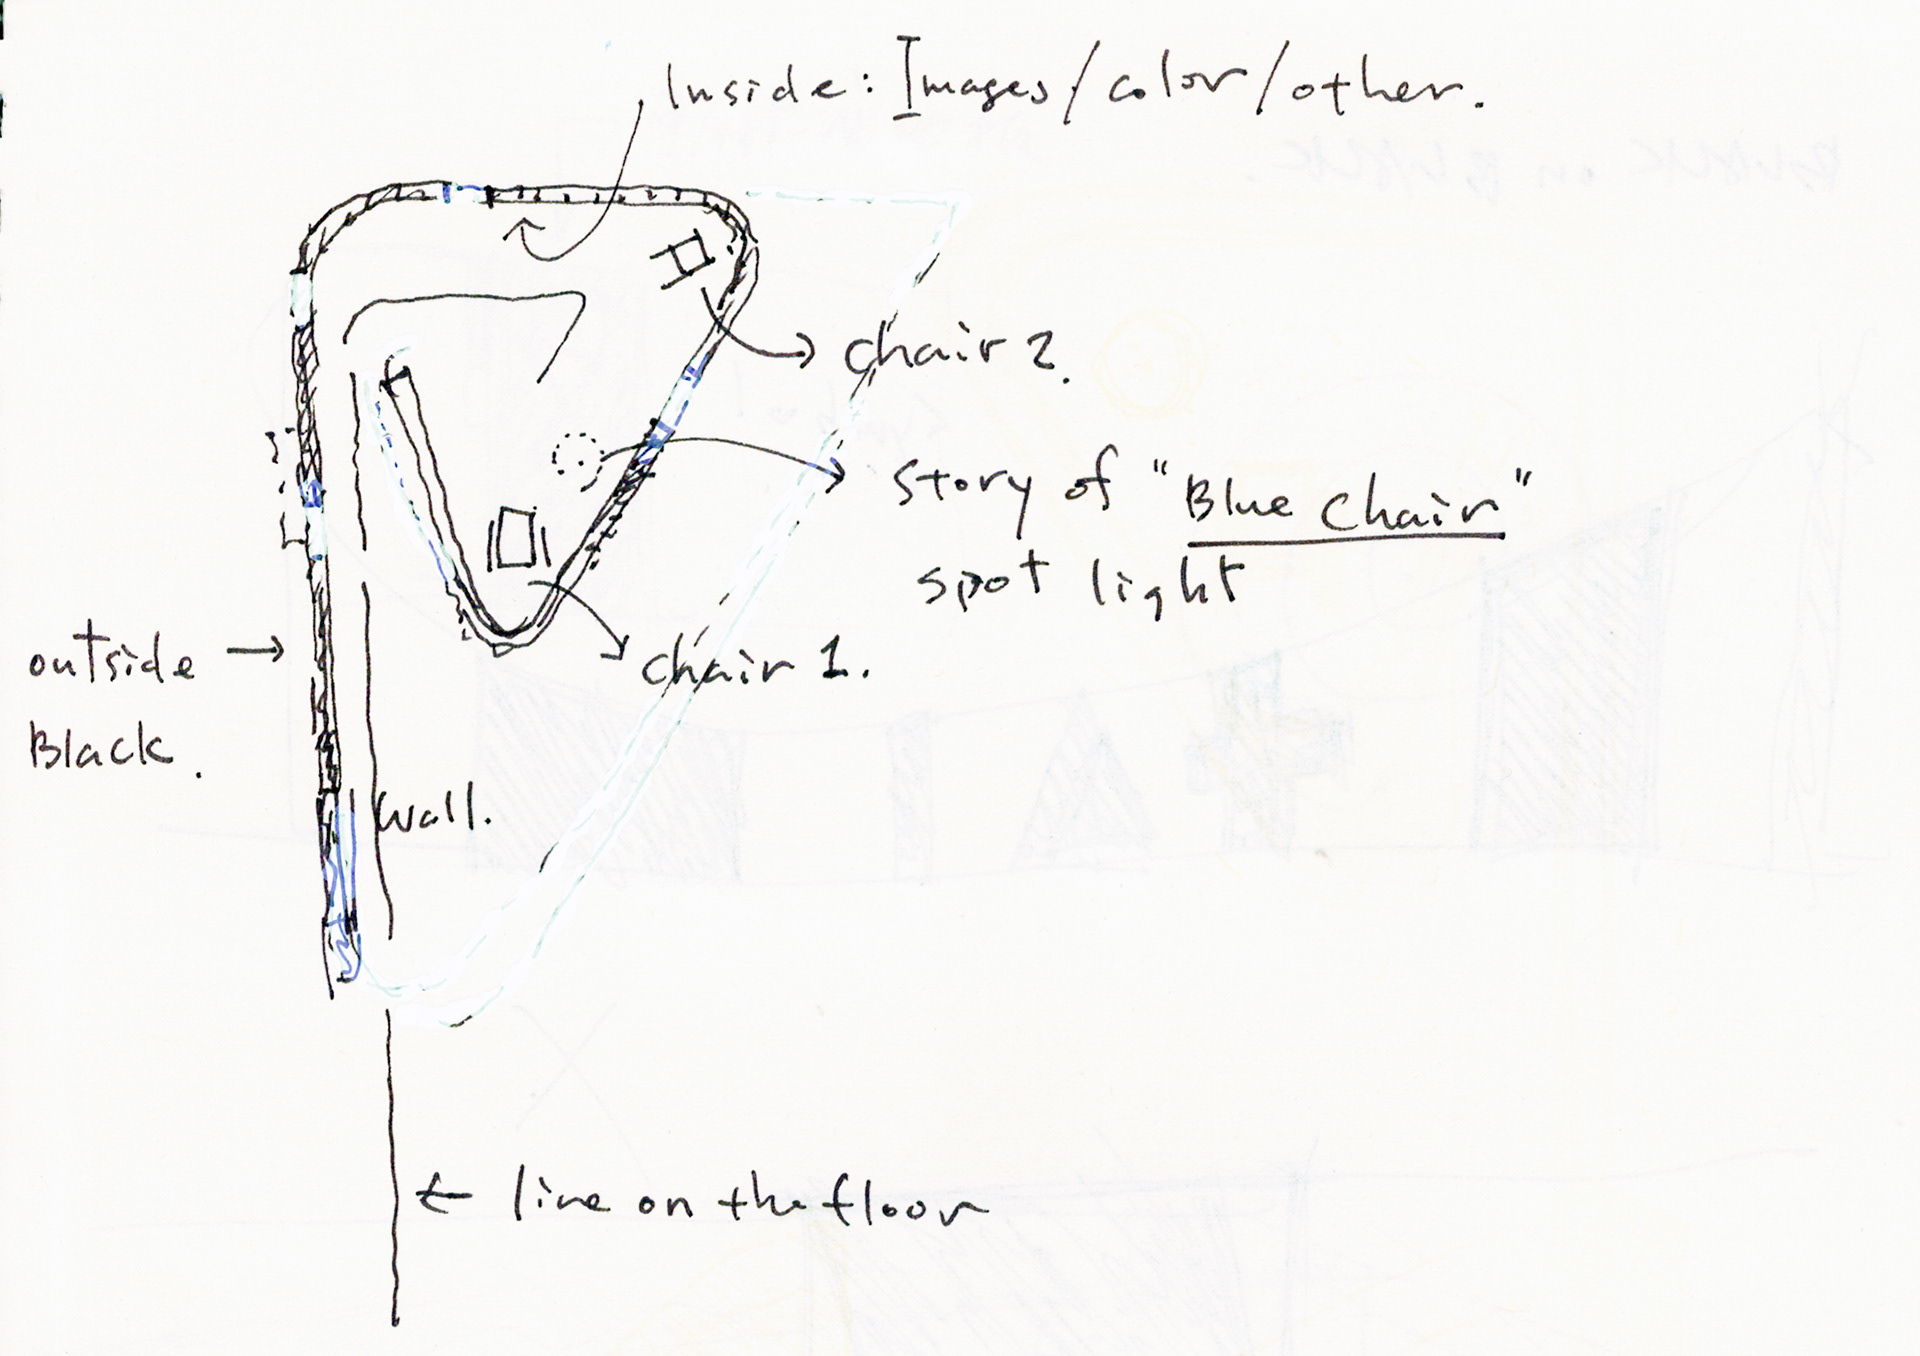 Inside: Images/color/other.
chair 2.
story of "Blue Chair"
spot light
chair 1.
outside
Black.
wall.
← line on the floor